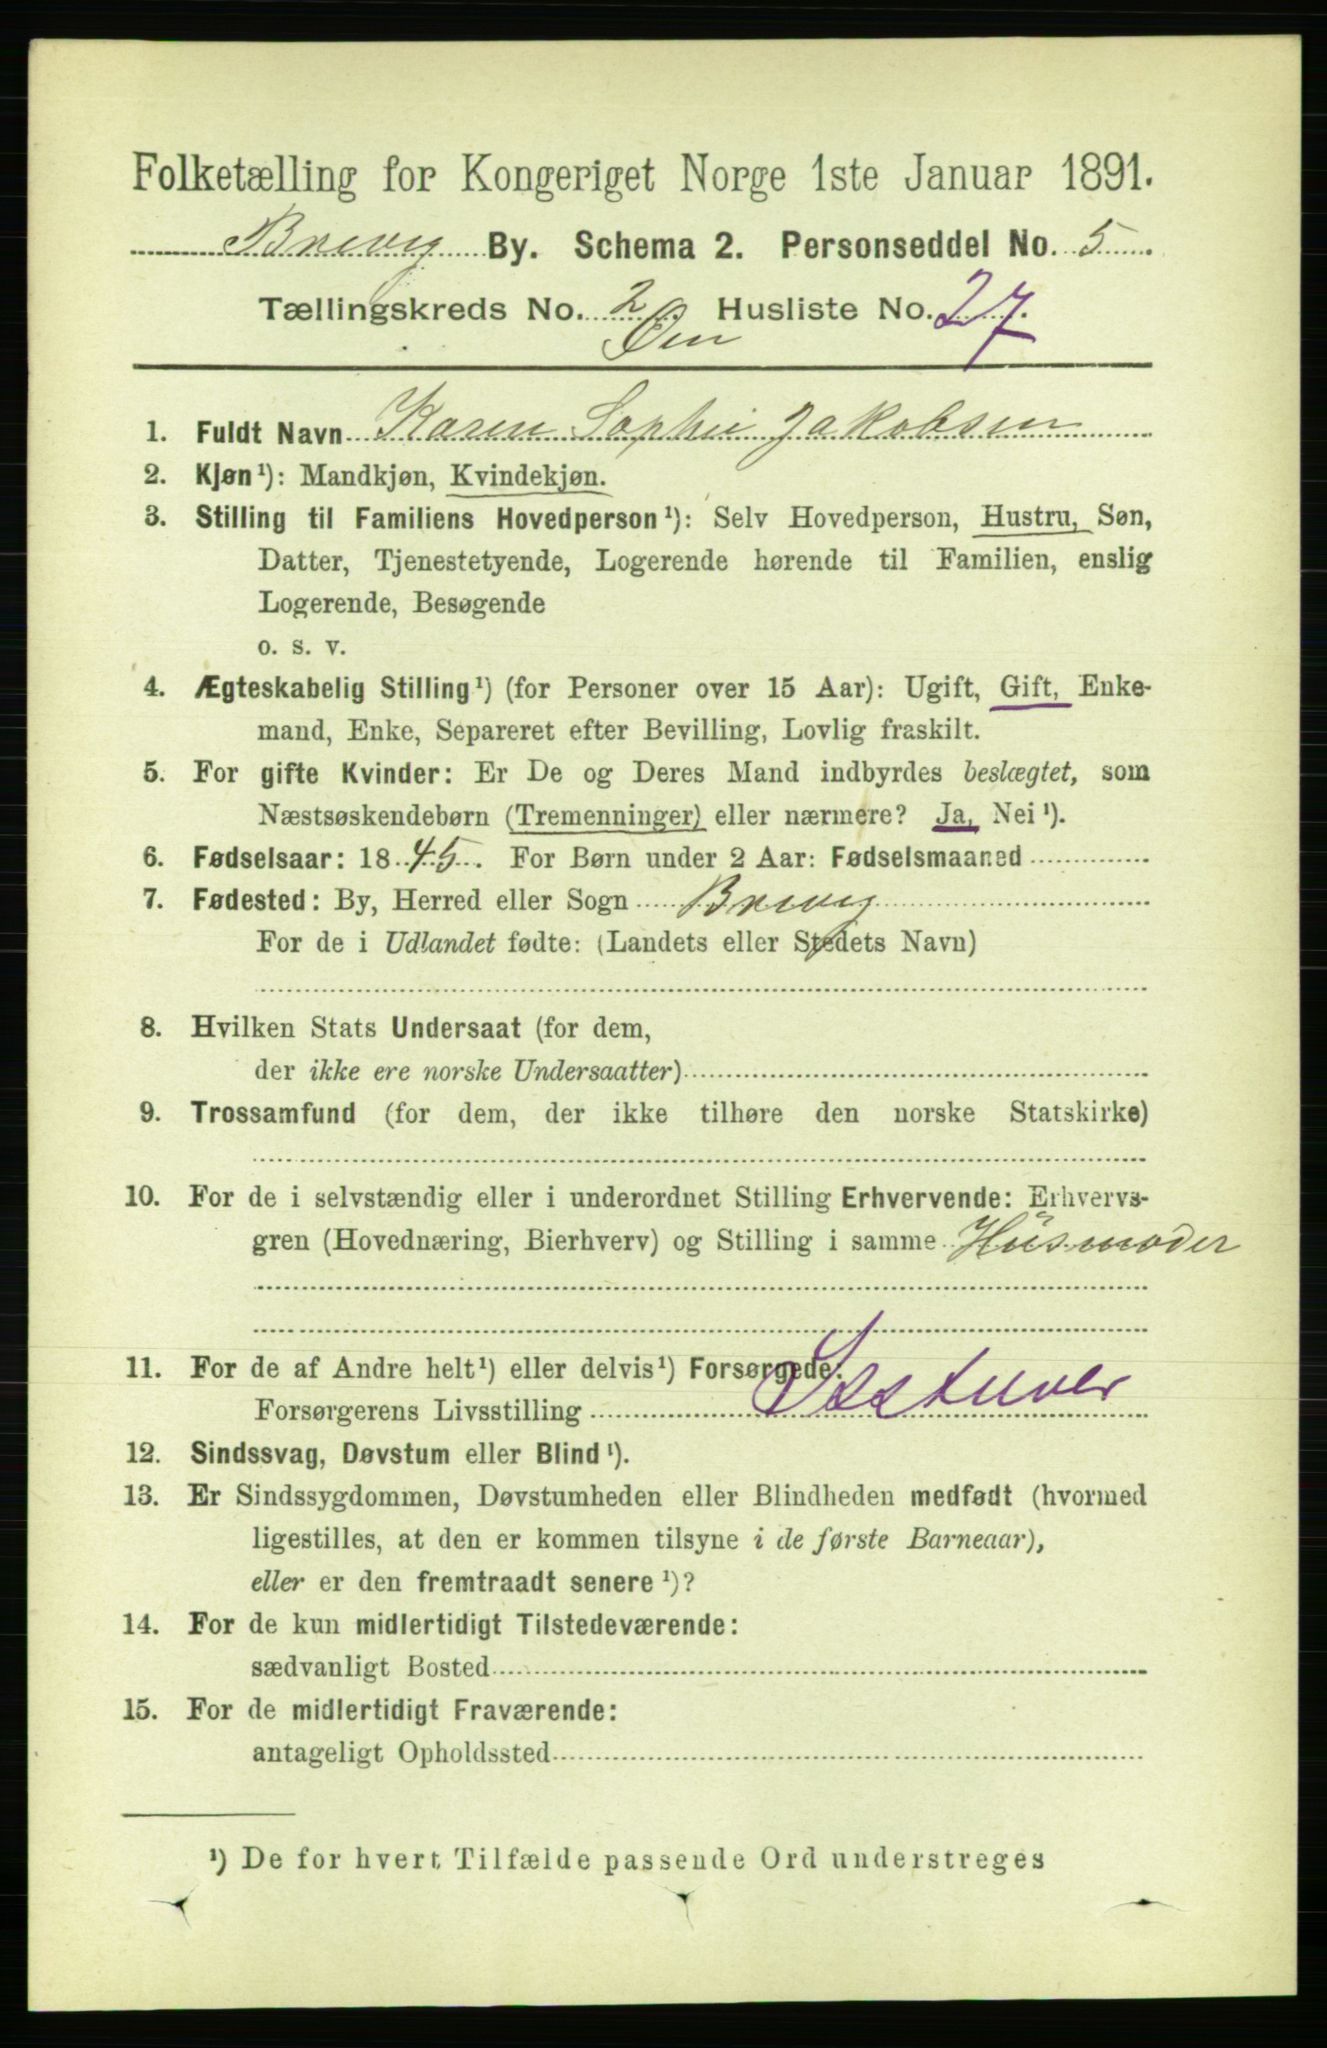 Folketælling for Kongeriget Norge 1ste Januar 1891.
Brevig By. Schema 2. Personseddel No. 5
Tællingskreds No. 2 Husliste No. 27.
Øen
1. Fuldt Navn Karen Sophie Jakobsen
2. Kjøn¹): Mandkjøn, Kvindekjøn.
3. Stilling til Familiens Hovedperson¹): Selv Hovedperson, Hustru, Søn,
Datter, Tjenestetyende, Logerende hørende til Familien, enslig
Logerende, Besøgende
o. s. v.
4. Ægteskabelig Stilling¹) (for Personer over 15 Aar): Ugift, Gift, Enke-
mand, Enke, Separeret efter Bevilling, Lovlig fraskilt.
5. For gifte Kvinder: Er De og Deres Mand indbyrdes beslægtet, som
Næstsøskendebørn (Tremenninger) eller nærmere? Ja, Nei¹).
6. Fødselsaar: 1845. For Børn under 2 Aar: Fødselsmaaned
7. Fødested: By, Herred eller Sogn Brevig
For de i Udlandet fødte: (Landets eller Stedets Navn)
8. Hvilken Stats Undersaat (for dem,
der ikke ere norske Undersaatter)
9. Trossamfund (for dem, der ikke tilhøre den norske Statskirke)
10. For de i selvstændig eller i underordnet Stilling Erhvervende: Erhvervs-
gren (Hovednæring, Bierhverv) og Stilling i samme Husmoder
11. For de af Andre helt¹) eller delvis¹) Forsørgede:
Forsørgerens Livsstilling
12. Sindssvag, Døvstum eller Blind¹).
13. Er Sindssygdommen, Døvstumheden eller Blindheden medfødt (hvormed
ligestilles, at den er kommen tilsyne i de første Barneaar),
eller er den fremtraadt senere¹)?
14. For de kun midlertidigt Tilstedeværende:
sædvanligt Bosted
15. For de midlertidigt Fraværende:
antageligt Opholdssted
¹) De for hvert Tilfælde passende Ord understreges